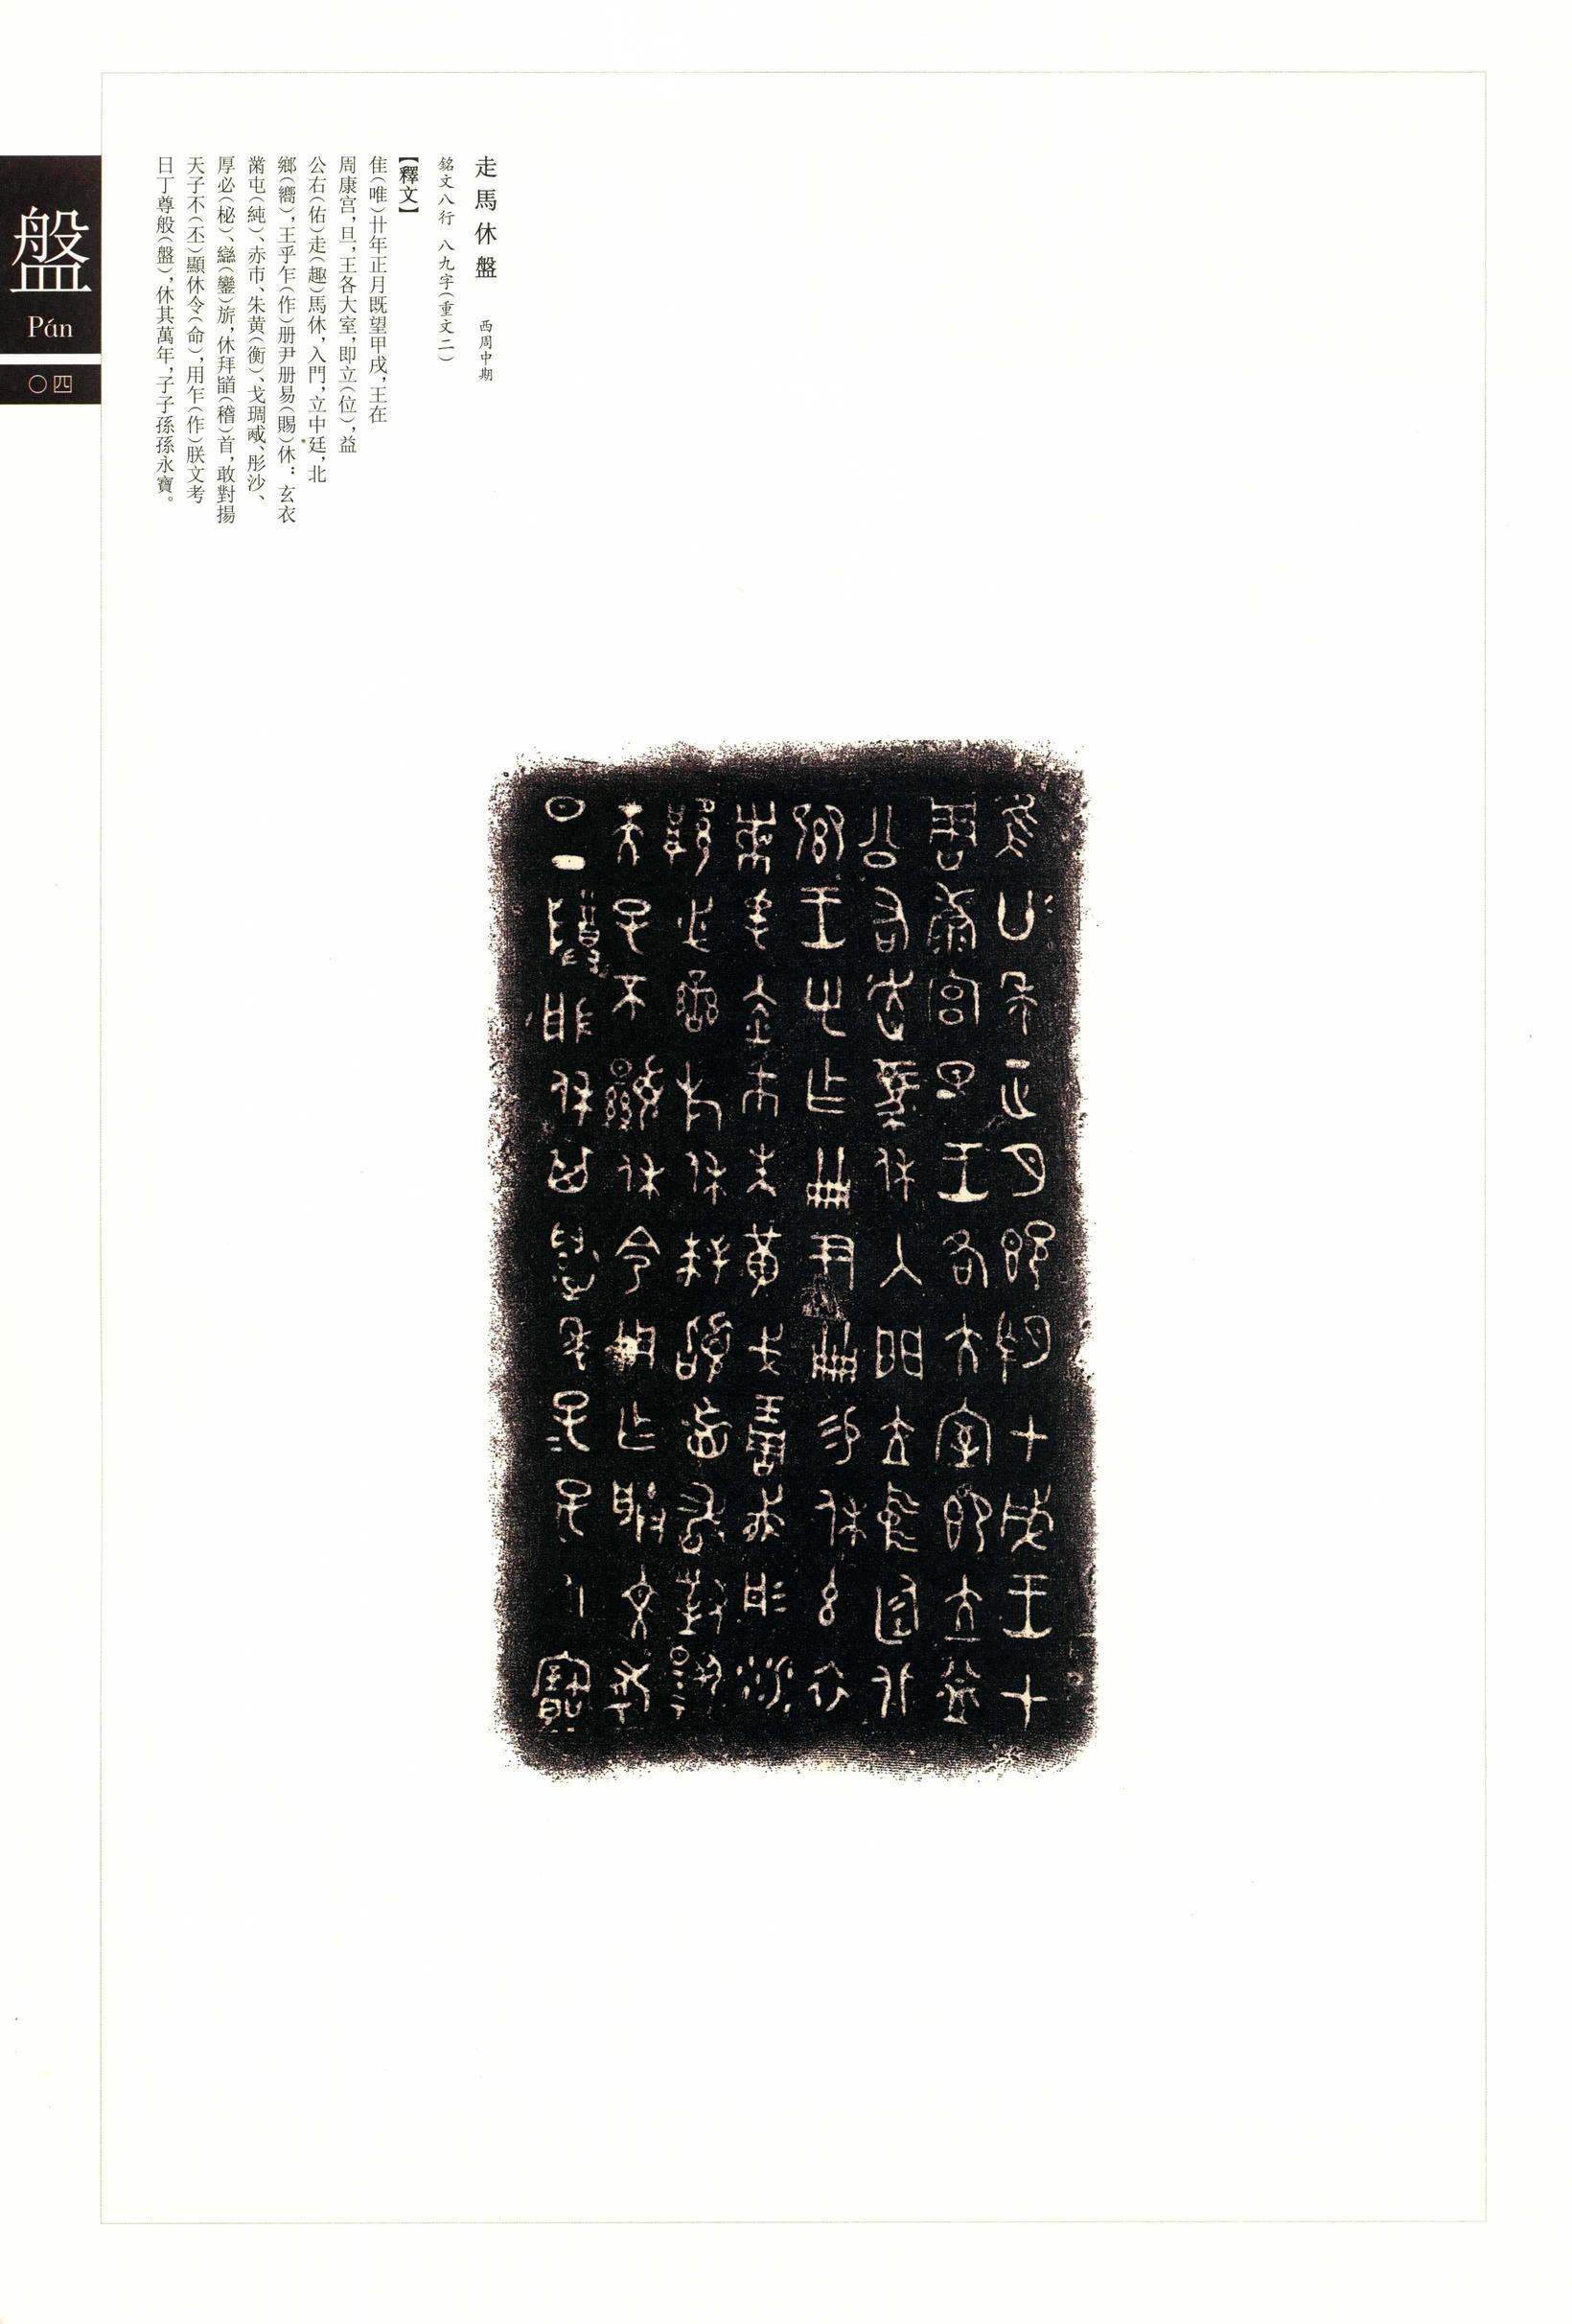 走馬休盤 西周中期
銘文八行 八九字(重文二)
【釋文】
隹(唯)廿年正月既望甲戌,王在
周康宫,旦,王各大室,即立(位),益
公右(佑)走(趣)馬休,入門,立中廷,北
鄉(嚮),王乎乍(作)册尹册易(賜)休:玄衣
黹屯(純)、赤巿、朱黄(衡)、戈琱㦸、彤沙、
厚必(柲)、䜌(鑾)旂,休拜䭫(稽)首,敢對揚
天子不(丕)顯休令(命),用乍(作)朕文考
日丁尊般(盤),休其萬年,子子孫孫永寶。
盤
Pán
〇四